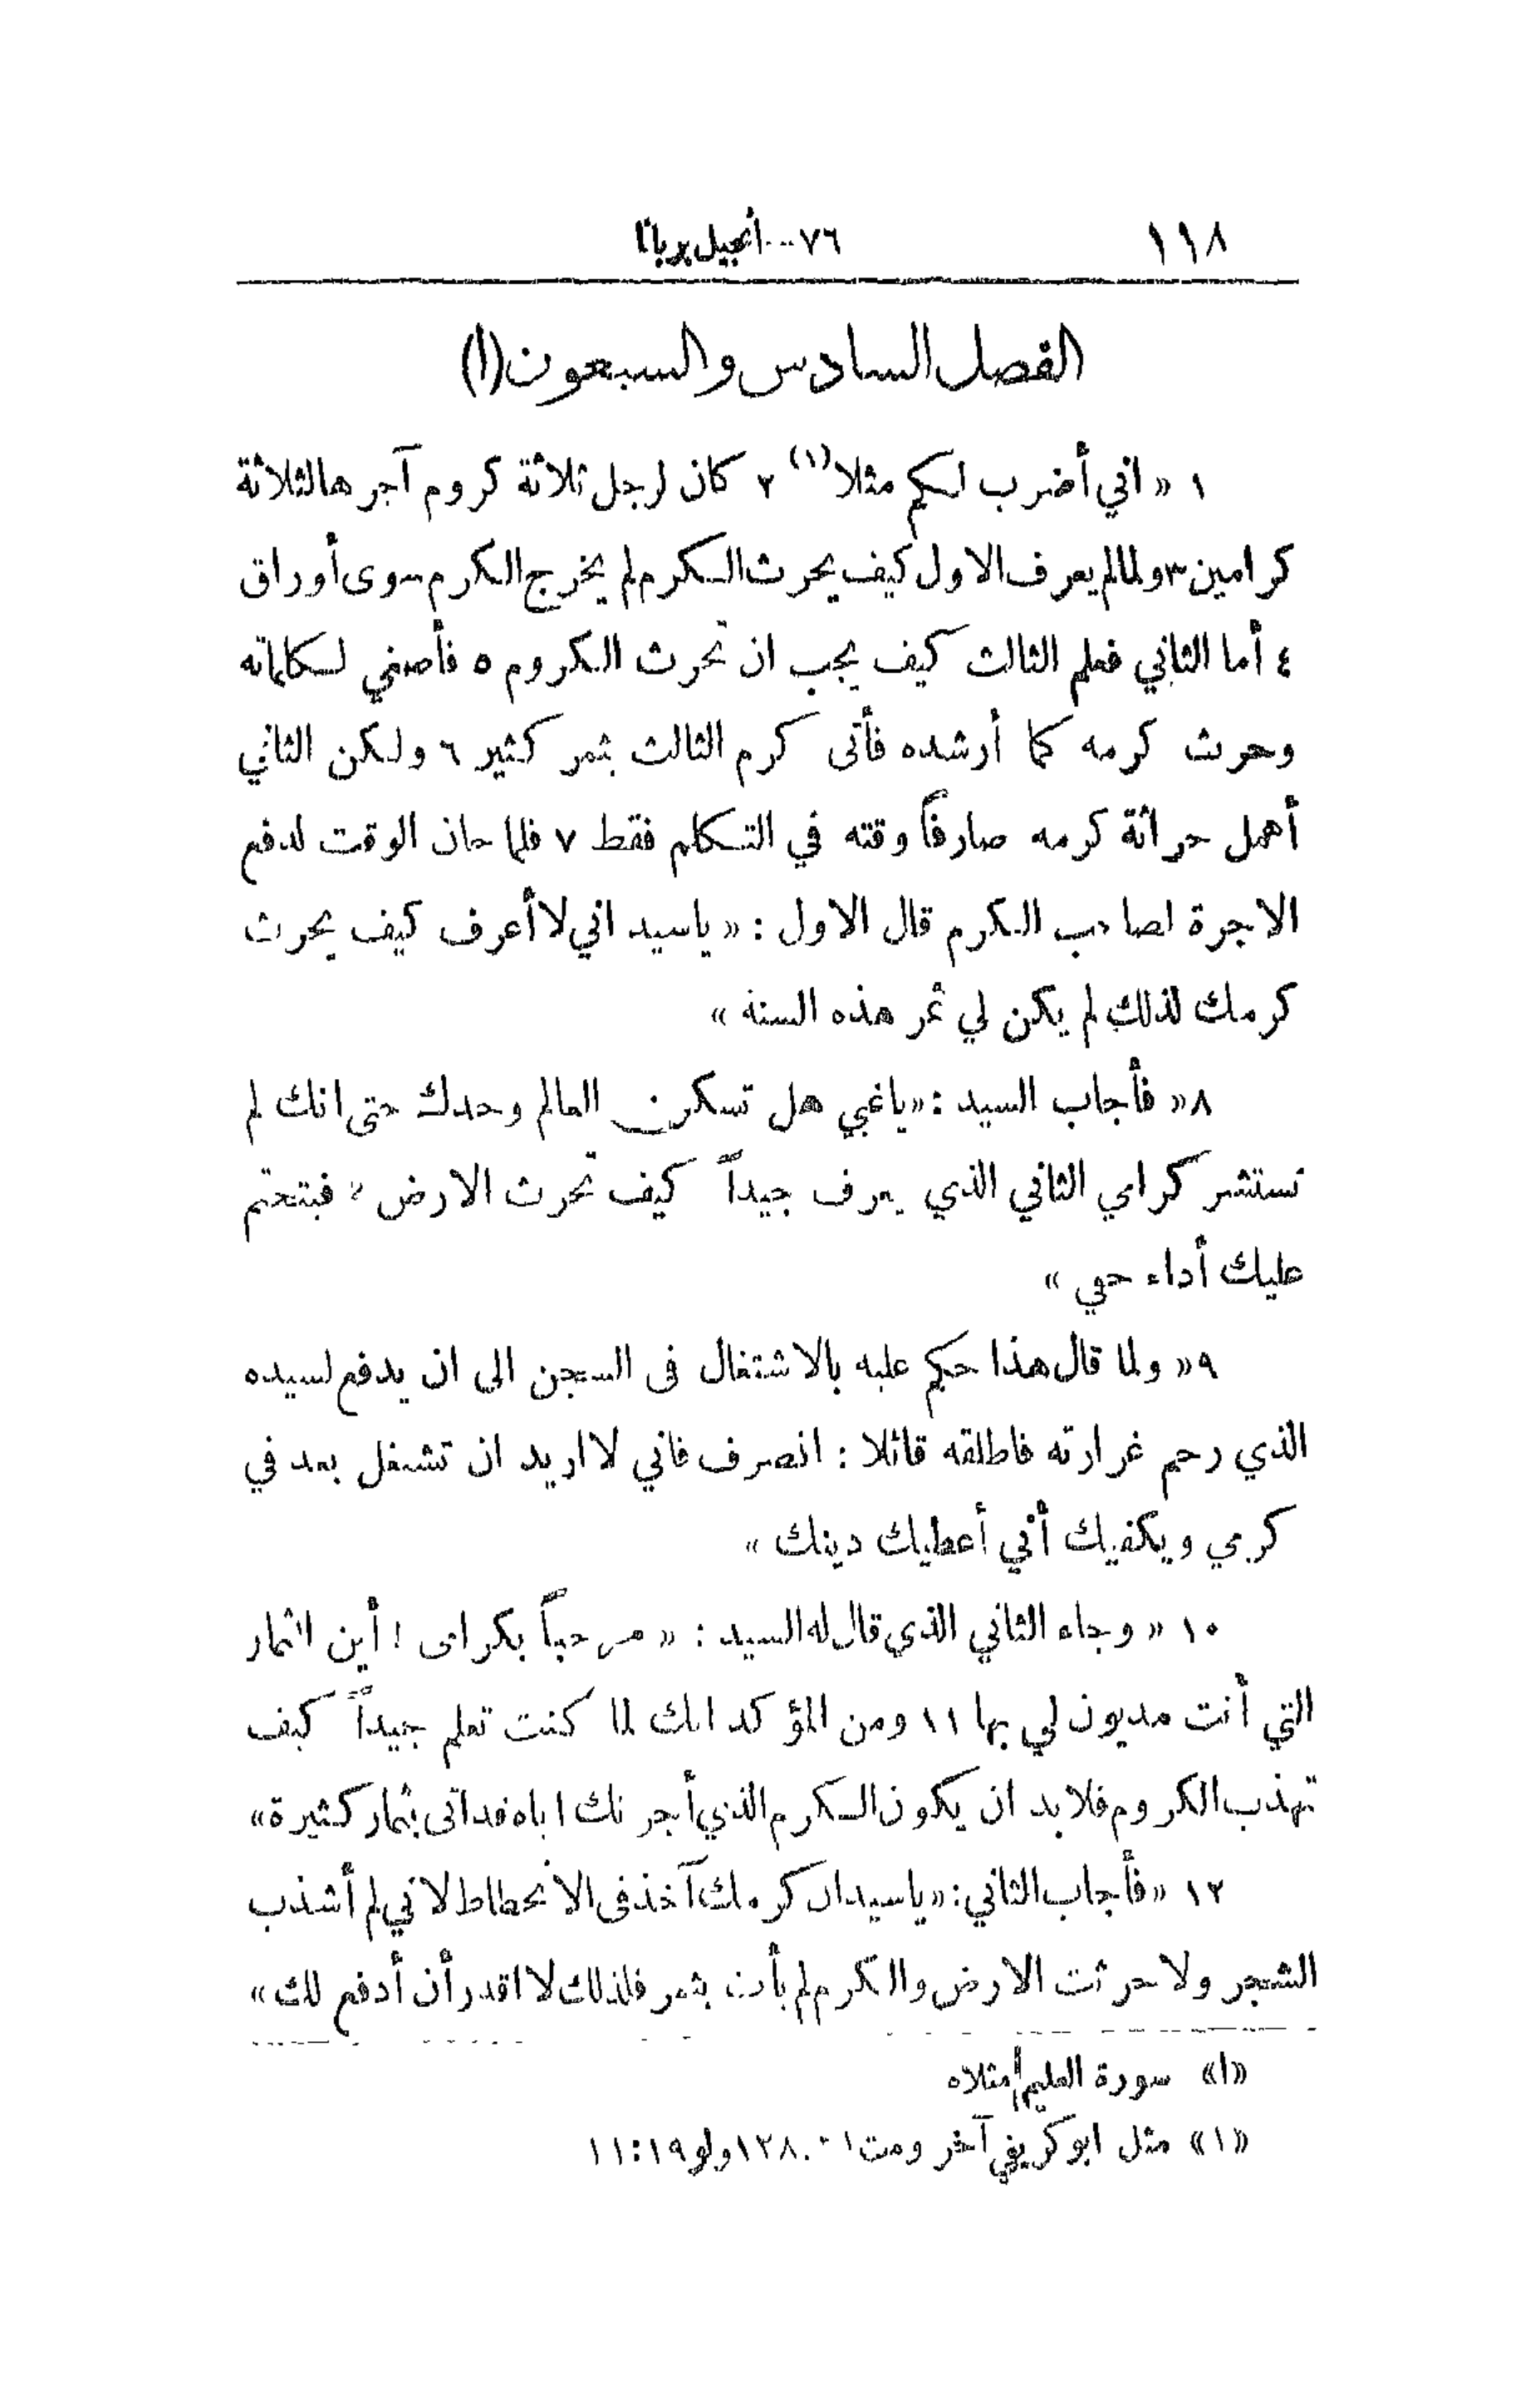 ١١٨
٧٦ - انجيل برنابا
الفصل السادس والسبعون (ا)
١ « اني أضرب لكم مثلا (١) ٢ كان لرجل ثلاثة كروم آجرها لثلاثة
كرامين ٣ ولما لم يعرف الاول كيف يحرث الكرم لم يخرج الكرم سوى أوراق
٤ أما الثاني فعلم الثالث كيف يجب ان تحرث الكروم ٥ فأصغى لكلماته
وحرث كرمه كما أرشده فأتى كرم الثالث بثمر كثير ٦ ولكن الثاني
أهمل حراثة كرمه صارفاً وقته في التكلم فقط ٧ فلما حان الوقت لدفع
الاجرة لصاحب الكرم قال الاول : « ياسيد اني لا أعرف كيف يحرث
كرمك لذلك لم يكن لي ثمر هذه السنة »
٨ « فأجاب السيد : « ياغبي هل تسكن العالم وحدك حتى انك لم
تستشر كرامي الثاني الذي يعرف جيداً كيف تحرث الارض ؟ فيتحتم
عليك أداء حقي »
٩ « ولما قال هذا حكم عليه بالاشتغال فى السجن الى ان يدفع لسيده
الذي رحم غرارته فاطلقه قائلا : انصرف فاني لا اريد ان تشتغل بعد في
كرمي ويكفيك أني أعطيك دينك »
١٠ « وجاء الثاني الذي قال له السيد : « مرحباً بكرامى ! أين الثمار
التي أنت مديون لي بها ١١ ومن المؤكد انك لما كنت تعلم جيداً كيف
تهذب الكروم فلا بد ان يكون الكرم الذي أجرتك اياه قد اتى بثمار كثيرة »
١٢ « فأجاب الثاني : « ياسيد ان كرمك آخذ فى الانحطاط لاني لم أشذب
الشجر ولا حرثت الارض والكرم لم يأت بثمر فلذلك لا اقدر أن أدفع لك »
«ا» سورة العليم أمثلاه
«١» مثل ابوكريفي آخر ومت ولو ١٩:١١